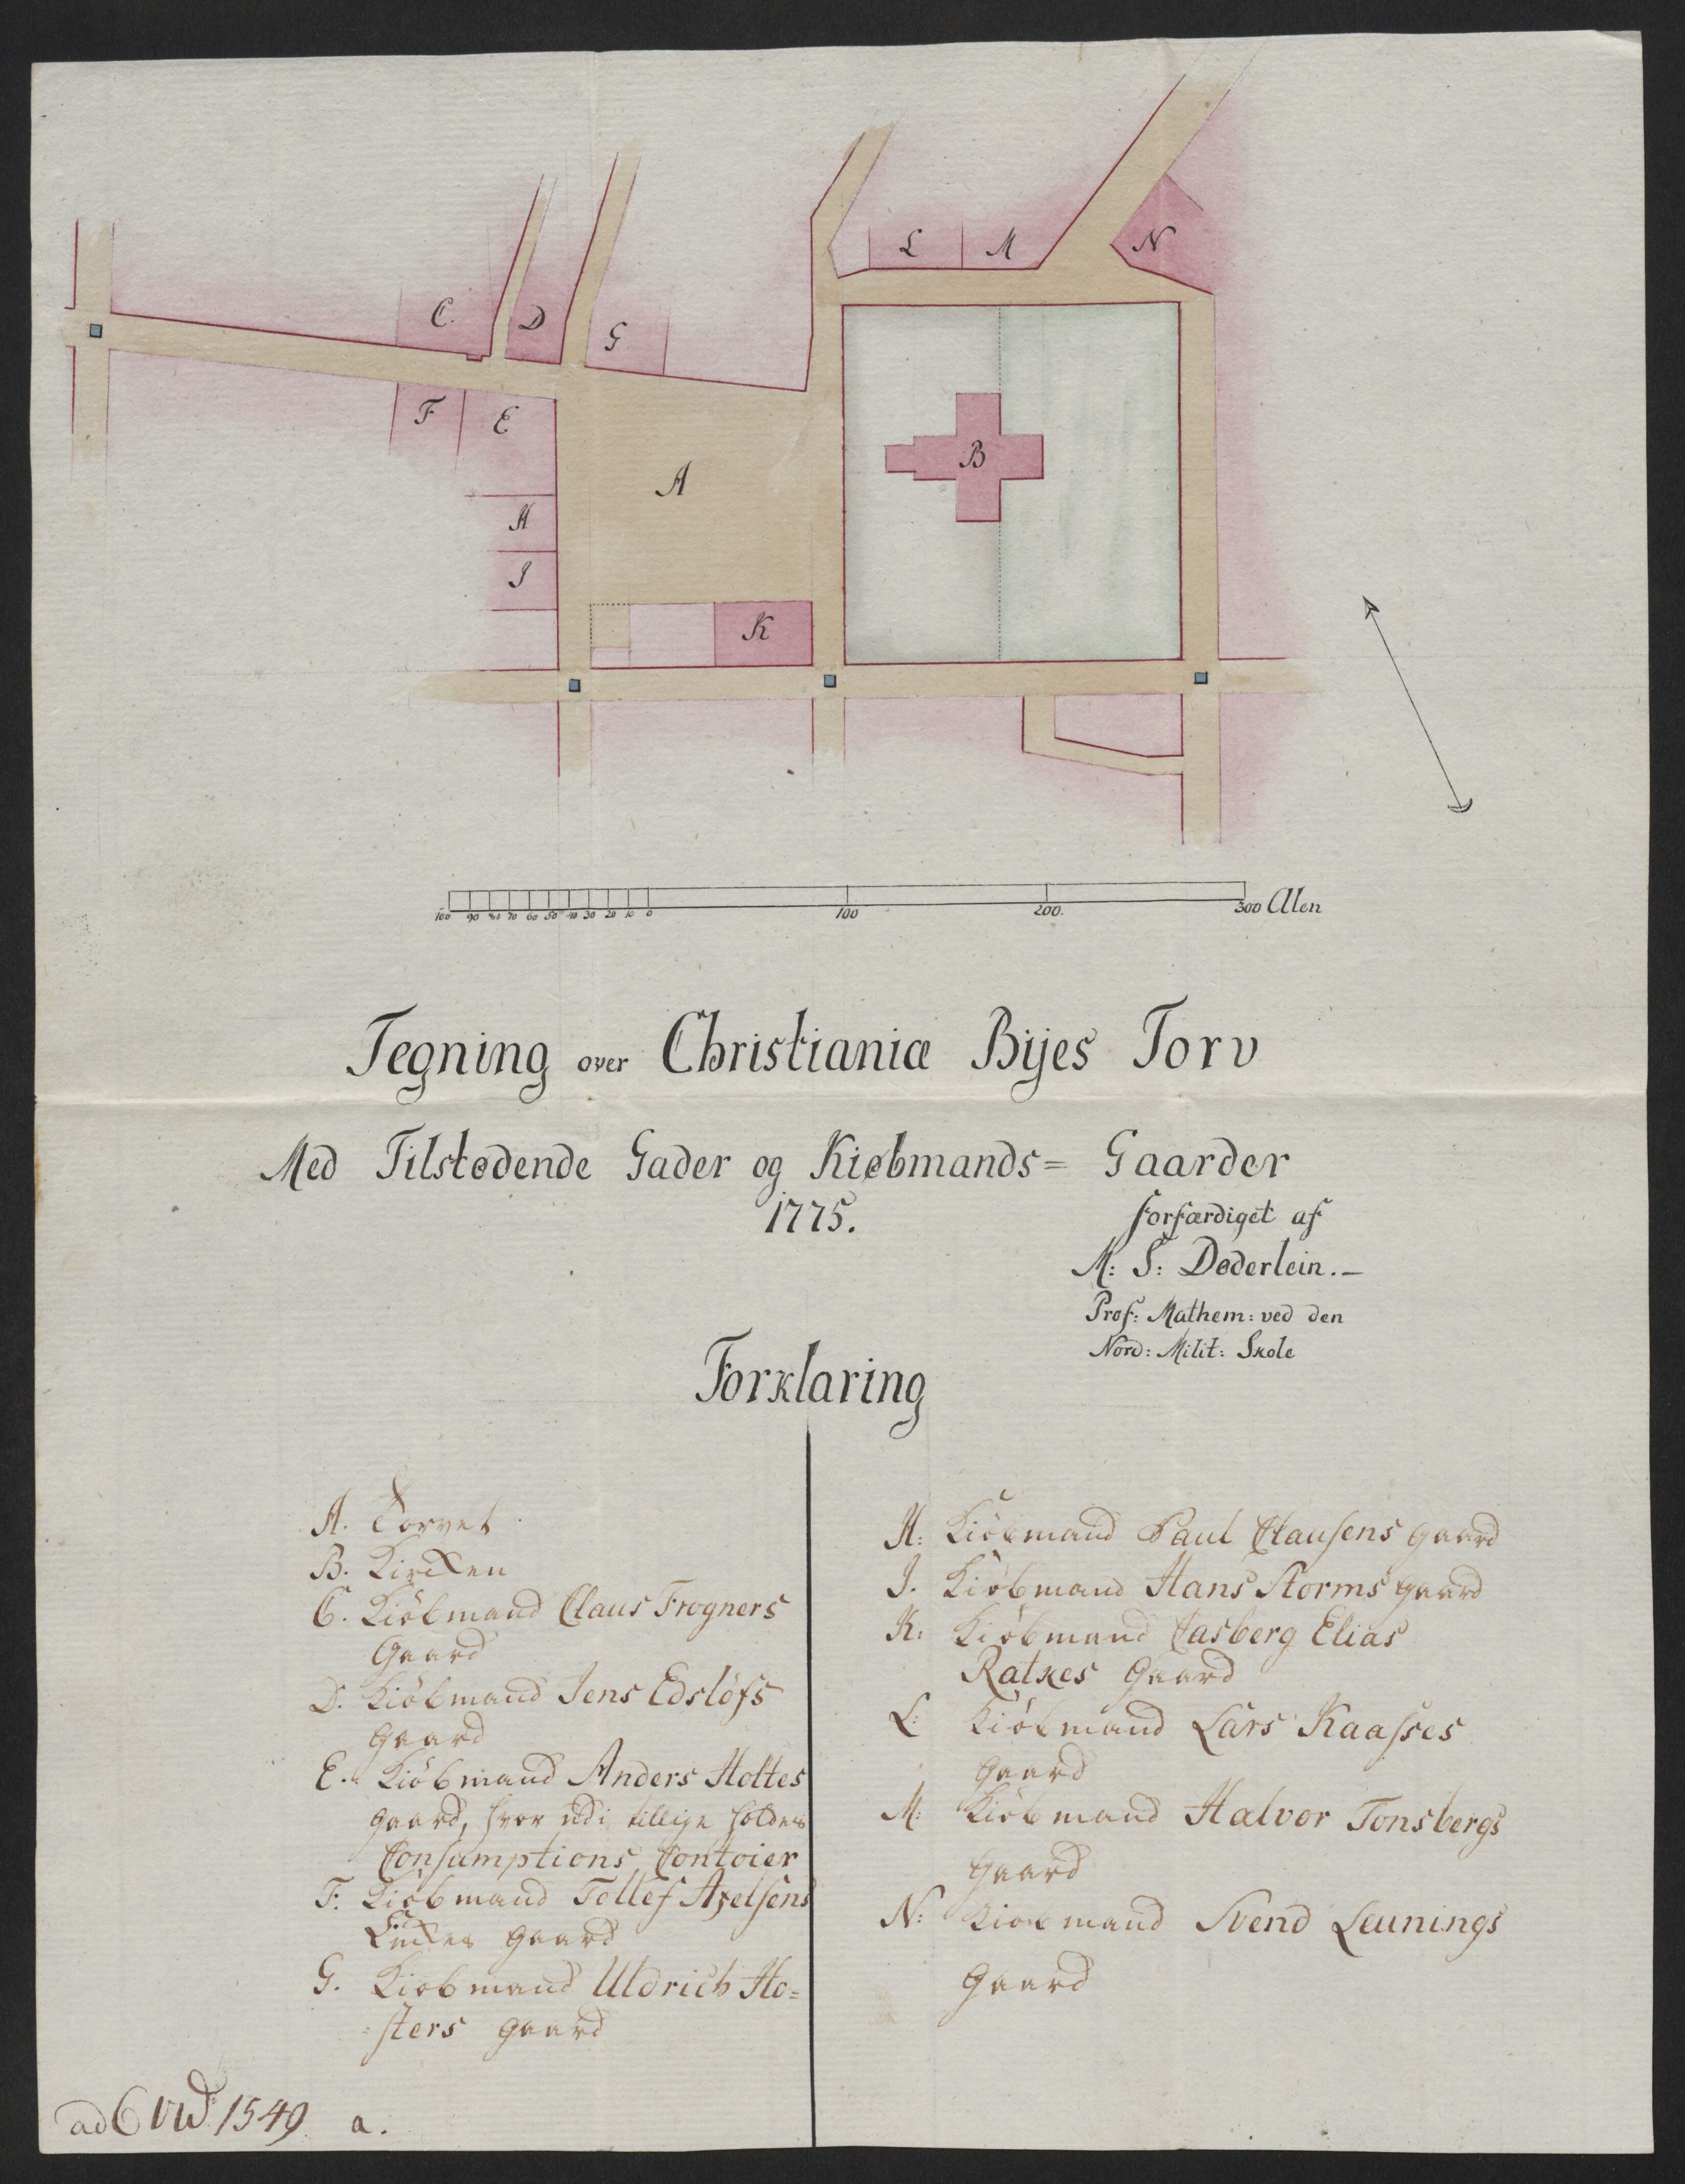 L M N
C. D G
F E
A
B
H
I
K
100 90 80 70 60 50 40 30 20 10 0 100 200. 300 Alen
Tegning over Christianiæ Bÿes Torv
Med Tilstødende Gader og Kiøbmands= Gaarder
1775.
forfærdiget af
M: S: Døderlein.—
Prof: Mathem: ved den
Nord: Milit: Skole
Forklaring
A. Torvet
B. Kircken
C. Kiöbmand Claus Frogners
Gaard
D. Kiöbmand Jens Edslöfs
gaard
E. Kiöbmand Anders Holtes
gaard, hvor udi tillige holdes
Consumptions Contoier
F. Kiöbmand Tellef Axelsens
gaard
G. Kiöbmand Uldrich Ho=
=sters gaard
H: Kiöbmand Paul Clausens gaard
I. Kiöbmand Hans Storms gaard
K: Kiöbmand Casberg Elias
Ratkes Gaard
L: Kiöbmand Lars Kaasses
gaard
M: Kiöbmand Halvor Tonsbergs
gaard
N: Kiöbmand Svend Leunings
Gaard
ad 1549 a.